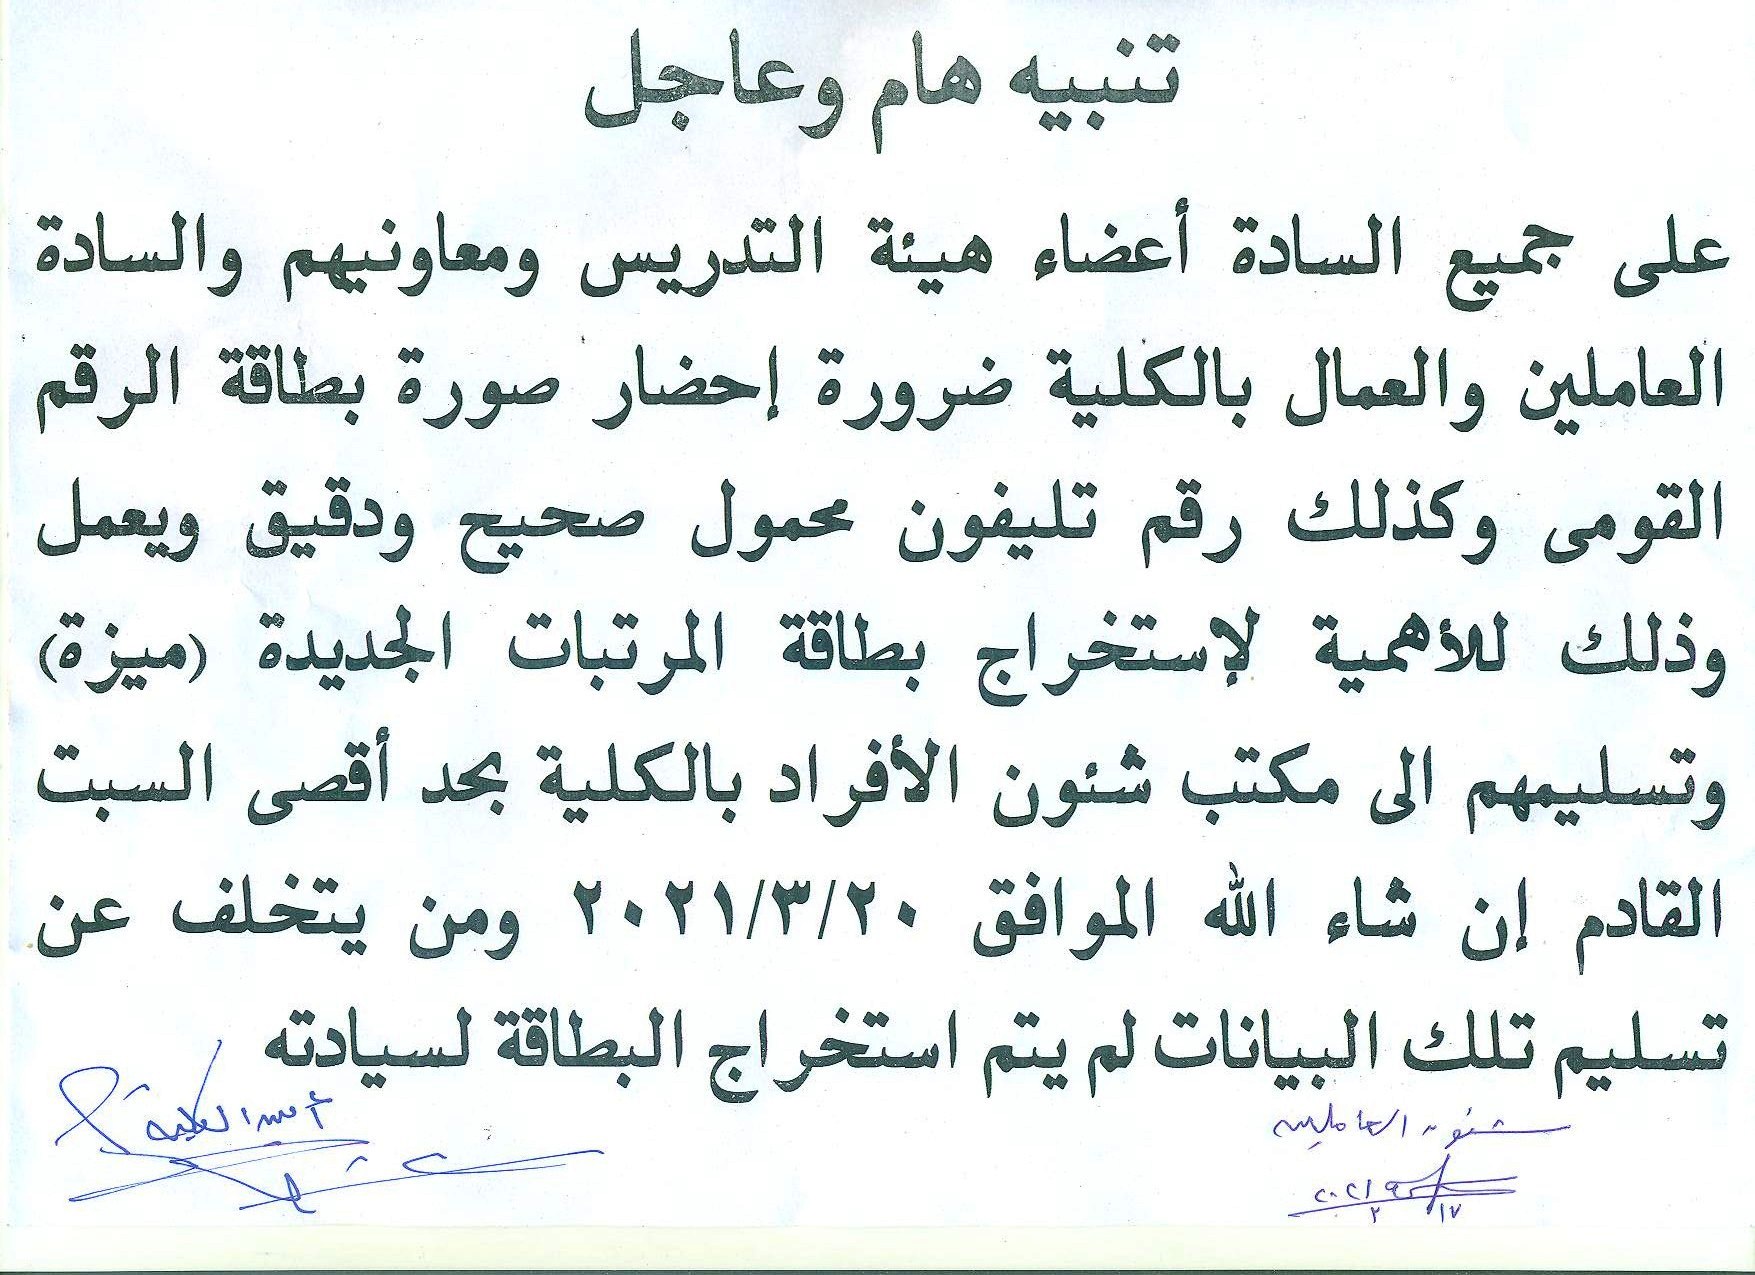 تنبيه هام وعاجل
على جميع السادة أعضاء هيئة التدريس ومعاونيهم والسادة
العاملين والعمال بالكلية ضرورة إحضار صورة بطاقة الرقم
القومى وكذلك رقم تليفون محمول صحيح ودقيق ويعمل
وذلك للأهمية لإستخراج بطاقة المرتبات الجديدة (ميزة)
وتسليمهم الى مكتب شئون الأفراد بالكلية بحد أقصى السبت
القادم إن شاء الله الموافق ٢٠٢١/٣/٢٠ ومن يتخلف عن
تسليم تلك البيانات لم يتم استخراج البطاقة لسيادته
شئون العاملين
أمين الكلية